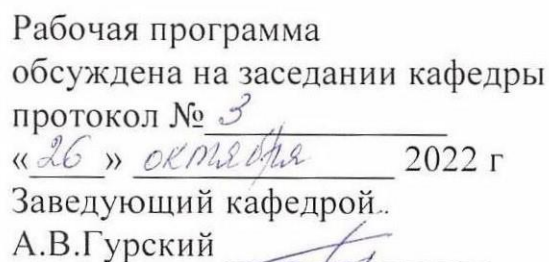 Рабочая программа
обсуждена на заседании кафедры
протокол № 3
«26» октября 2022 г
Заведующий кафедрой..
А.В.Гурский